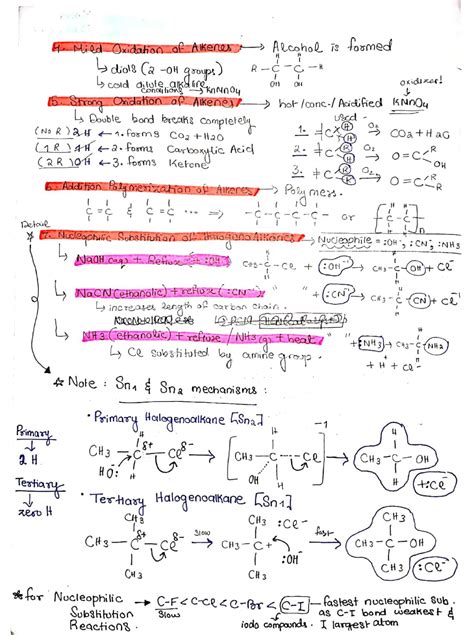 4. Mild Oxidation of Alkenes → Alcohol is formed
↳ diols (2 -OH groups)
R - C - C - H
OH OH
↳ cold dilute alkaline KMnO4
conditions
oxidizer!
5. Strong Oxidation of Alkenes → hot/conc./Acidified KMnO4
used
↳ Double bond breaks completely
(No R) 2H ← 1. forms CO2 + H2O
1. C H H O2 → CO2 + H2O
(1 R) 1H ← 2. forms Carboxylic Acid
2. C R H O2 → O=C R OH
(2 R) 0H ← 3. forms Ketone
3. C R R O2 → O=C R R
6. Addition Polymerization of Alkenes → Polymers.
C=C & C=C ... → -C-C-C-C- or [C-C]n
Detail
7. Nucleophilic Substitution of Halogenoalkanes → Nucleophile = :OH⁻, :CN⁻, NH3
↳ NaOH(aq) + Reflux :OH⁻
CH3-C-Cl + :OH⁻ → CH3-C-OH + Cl⁻
↳ NaCN (ethanolic) + reflux (:CN⁻)
" " + :CN⁻ → CH3-C-CN + Cl⁻
↳ increases length of carbon chain.
↳ NH3 (ethanolic) + reflux / NH3(g) + heat
" " + :NH3 → CH3-C-NH2
+ H + Cl⁻
↳ Cl substituted by amine group.
☆ Note : Sn1 & Sn2 mechanisms :
• Primary Halogenoalkane [Sn2]
Primary
↓
2 H
CH3 - C δ+ - Cl δ-
H H
HO:⁻
[CH3 - C - Cl] -1
H H OH
CH3 - C - OH
H H
+ :Cl⁻
Tertiary
↓
zero H
• Tertiary Halogenoalkane [Sn1]
CH3 - C δ+ - Cl δ-
CH3 CH3
slow
CH3 - C+ :Cl⁻
CH3 CH3
:OH⁻
fast
CH3 - C - OH
CH3 CH3
:Cl⁻
☆ for Nucleophilic Substitution Reactions. → C-F < C-Cl < C-Br < C-I → fastest nucleophilic sub.
slow
iodo compounds.
as C-I bond weakest & I largest atom